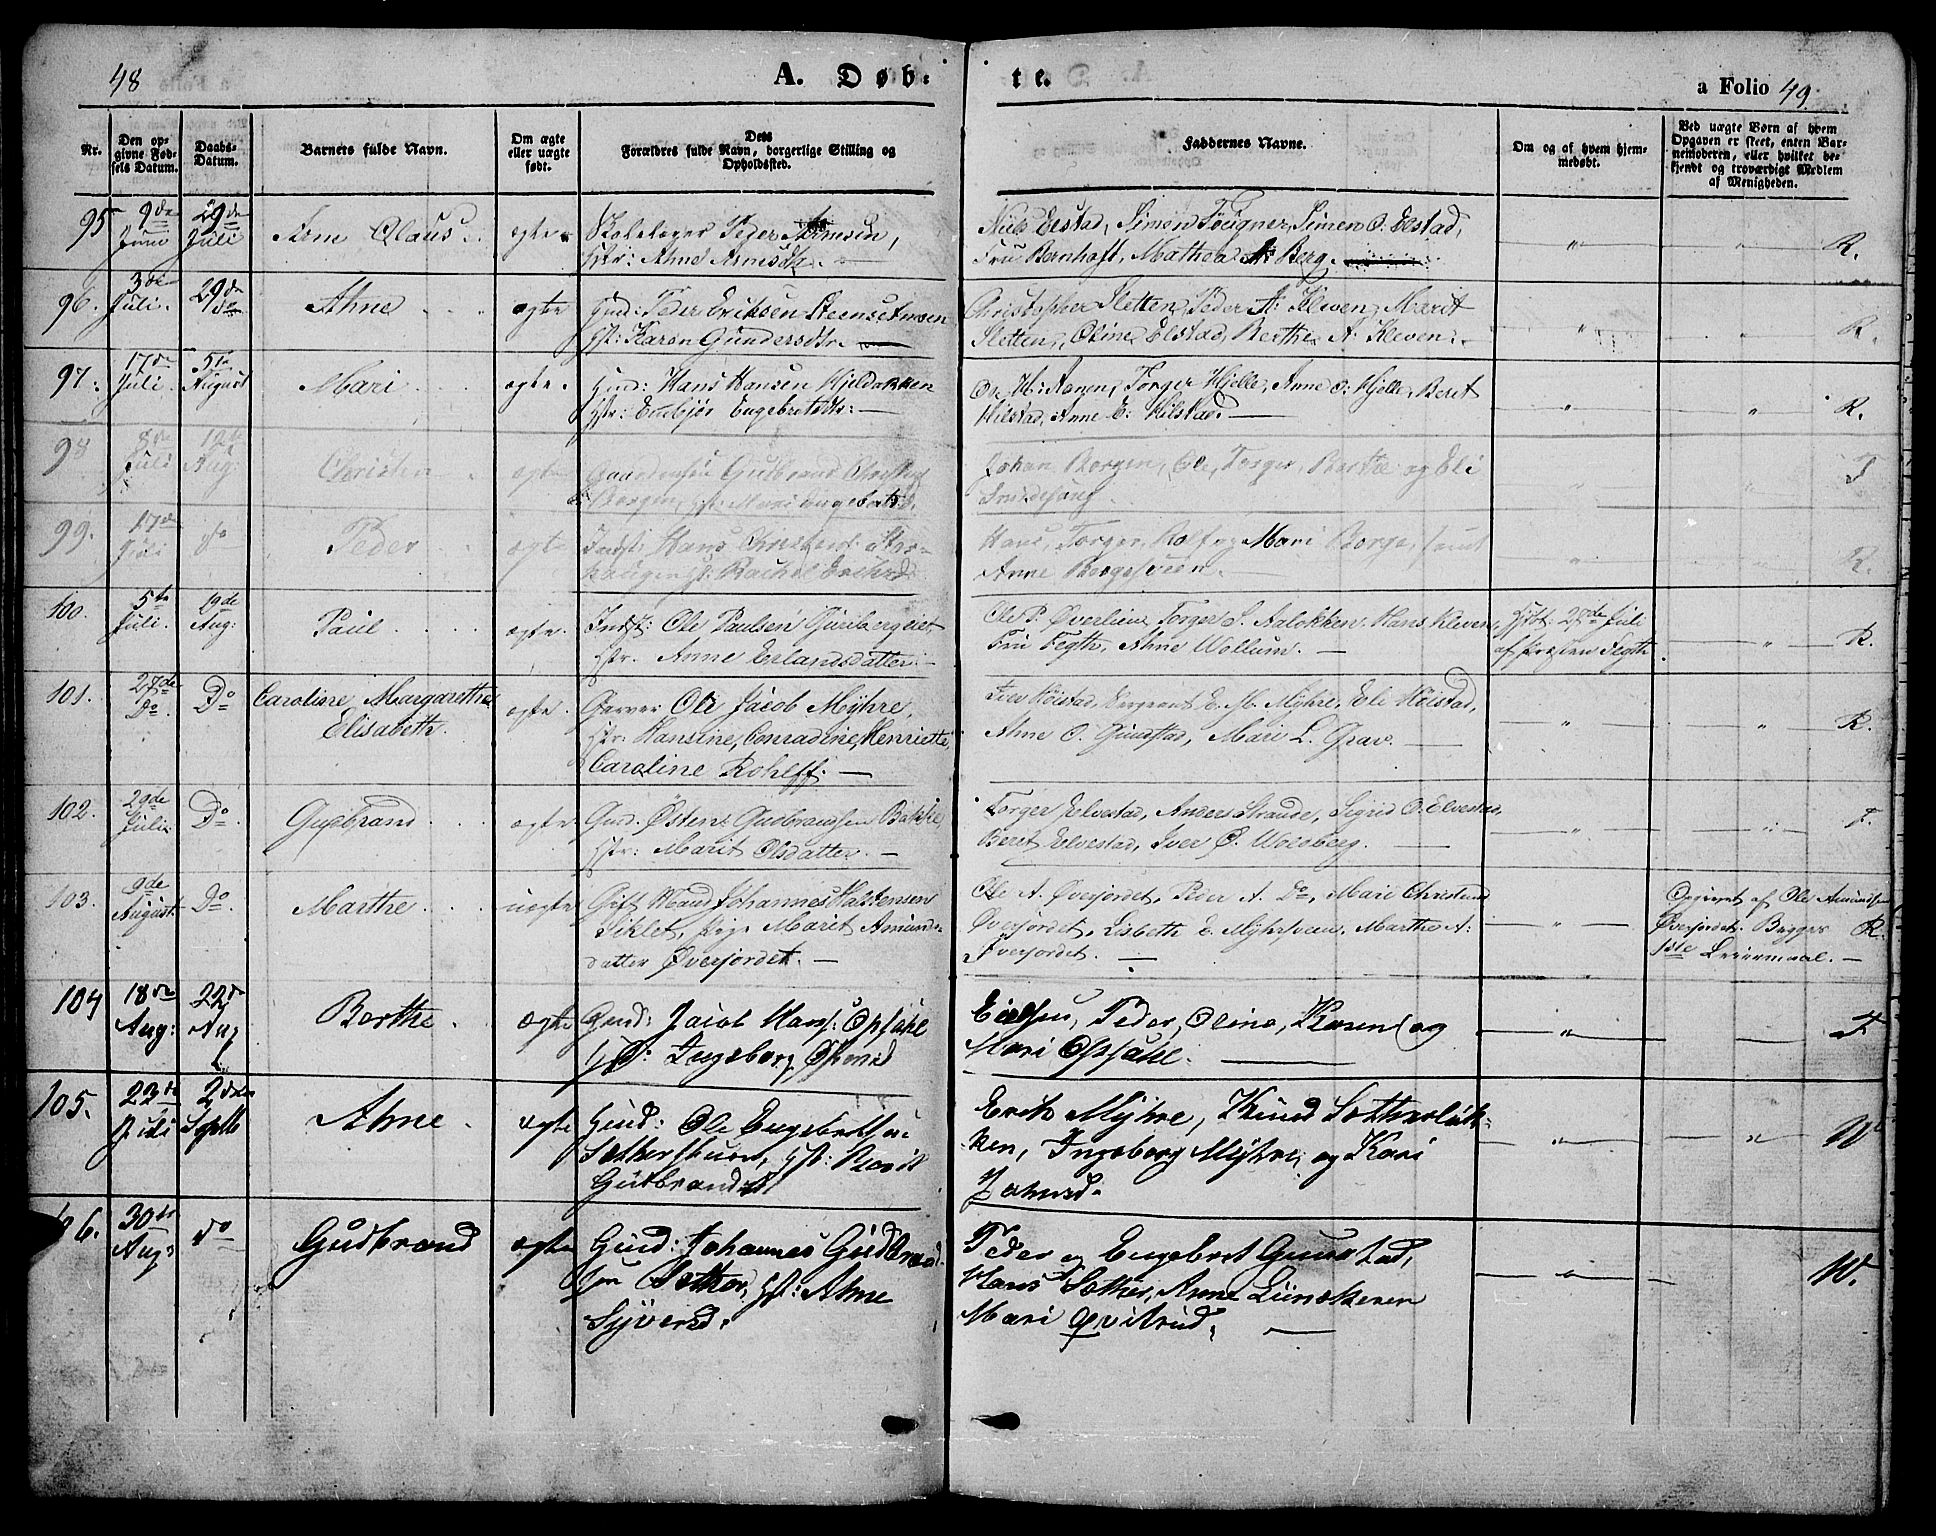 48
A. Døb-
te.
a Folio 49.
Nr.
Den op-
givne Fød-
sels Datum.
Daabs-
Datum.
Barnets fulde Navn.
Om ægte
eller uægte
født.
Dets
Forældres fulde Navn, borgerlige Stilling og
Opholdssted.
Faddernes Navne.
Om og af hvem hjem-
medøbt.
Ved uægte Børn af hvem
Opgaven er skeet, enten Bar-
nemoderen, eller hvilket be-
kjendt og troværdigt Medlem
af Menigheden.
95
9de
Juni
29de
Juli
Arm Claus
ægte.
Skolelærer Peder
Hstr: Ahne
Niels Elstad, Simen Fougner, Simen O. Elstad,
Fru Bernhoft, Mathea Berg.
R.
96.
3de
Juli.
29de
Do
Ahne
ægte
Gmd: Peder Eriksen Steensetmoen
Hst: Karen Gundersdtr.
Christopher Sletten, Peder A: Kleven, Marit
Sletten, Oline Elstad, Berthe A. Kleven.
R.
97.
17de
Juli.
5te
August
Mari
ægte.
Hans Hansen Hjeldakken
Hstr: Embjør Engebretsdtr:
Ole H: Aanen, Torger Hjelle, Anne O: Hjelle, Beret
Hilstad, Anne E: Hilstad.
R.
98
8de
Juli
12te
Aug:
Christen
ægte
Gaardmand Gudbrand
Borgen, Hst: Mari Engebretsd.
Johan Borgen, Ole, Torger, Berthe og Eli
F
99.
17de
Juli
do
Peder
ægte
Indst: Hans
haugen Hst: Rachel
Hans, Torger, Rolf og Mari Borge, samt
Anne Borgesveen.
R.
100.
5te
Juli.
19de
Aug:
Paul
ægte.
Indst: Ole Paulsen
Hstr. Anne Erlandsdatter.
Ole P. Øverlien, Torger S. Aalokken, Hans Kleven,
Fru Fegth, Ahne Wollum.
Hjdbt: 27de Juli
af Præsten Fegth.
R.
101.
27de
Do.
Do
Caroline Margarethe
Elisabeth.
ægte.
Garver Ole Jacob Myhre,
Hstr: Hansine, Conradine, Henriette
Caroline Rohlff.
Iver Høistad, Sergeant E. M. Myhre, Eli Høistad,
Ahne O. Gundstad, Mari L. Grav.
R.
102.
29de
Juli
Do.
Gudbrand
ægte
Gmd. Østen Gudbrandsen Bakke,
Hstr: Marit Olsdatter.
Torger Elvestad, Anders Strande, Sigrid O. Elvestad,
Beret Elvestad, Iver O. Woldberg.
F.
103.
9de
August.
Do.
Marthe
uægte
Gift Mand Johannes Halstensen
Siklet, Pige Marit Amunds-
datter Øverjordet.
Ole A. Øverjordet, Peder A. Do, Mari Christens
Øverjordet, Lisbeth E. Myhrsveen, Marthe A:
Øverjordet.
Opgivet af Ole Amundsen
Øverjordet. Begges
1ste Leiermaal.
R.
104
18de
Aug:
22de
Aug
Berthe
ægte
Gmd: Jacob Hans: Opsahl
Hst: Ingeborg
Peder, Oline, Karen og
Mari Opsahl.
F
105.
22de
Juli
2den
Septb
Ahne
ægte
Gmd: Ole Engebrets
Hst: Marit
Gudbrandsd
Erik Myhre, Knud Sætherløk-
ken, Ingeborg Myhre, og Kari
W
106.
30te
Aug:
do
Gudbrand
ægte
Gmd: Johannes Gudbrand-
sen Sæther, Hst: Ahne
Syversd.
Peder og Engebret Gunstad,
Hans Sæther, Anne
Mari Qvitrud,
W.